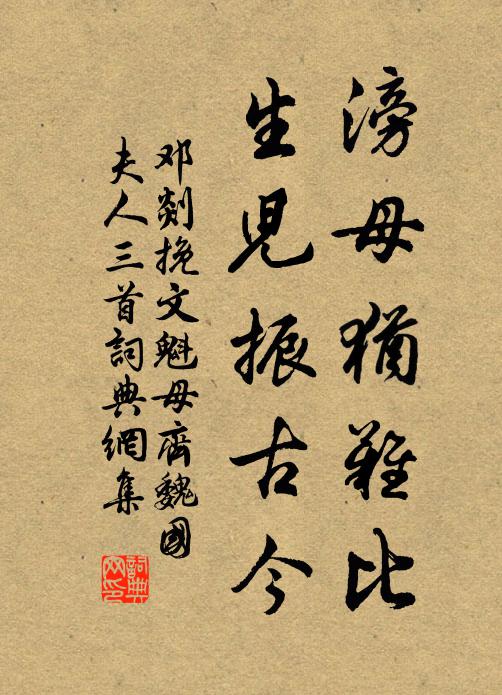 滂母猶難比
生兒振古今
邓剡挽文魁母齊魏國
夫人三首詞典網集
詞典
网印